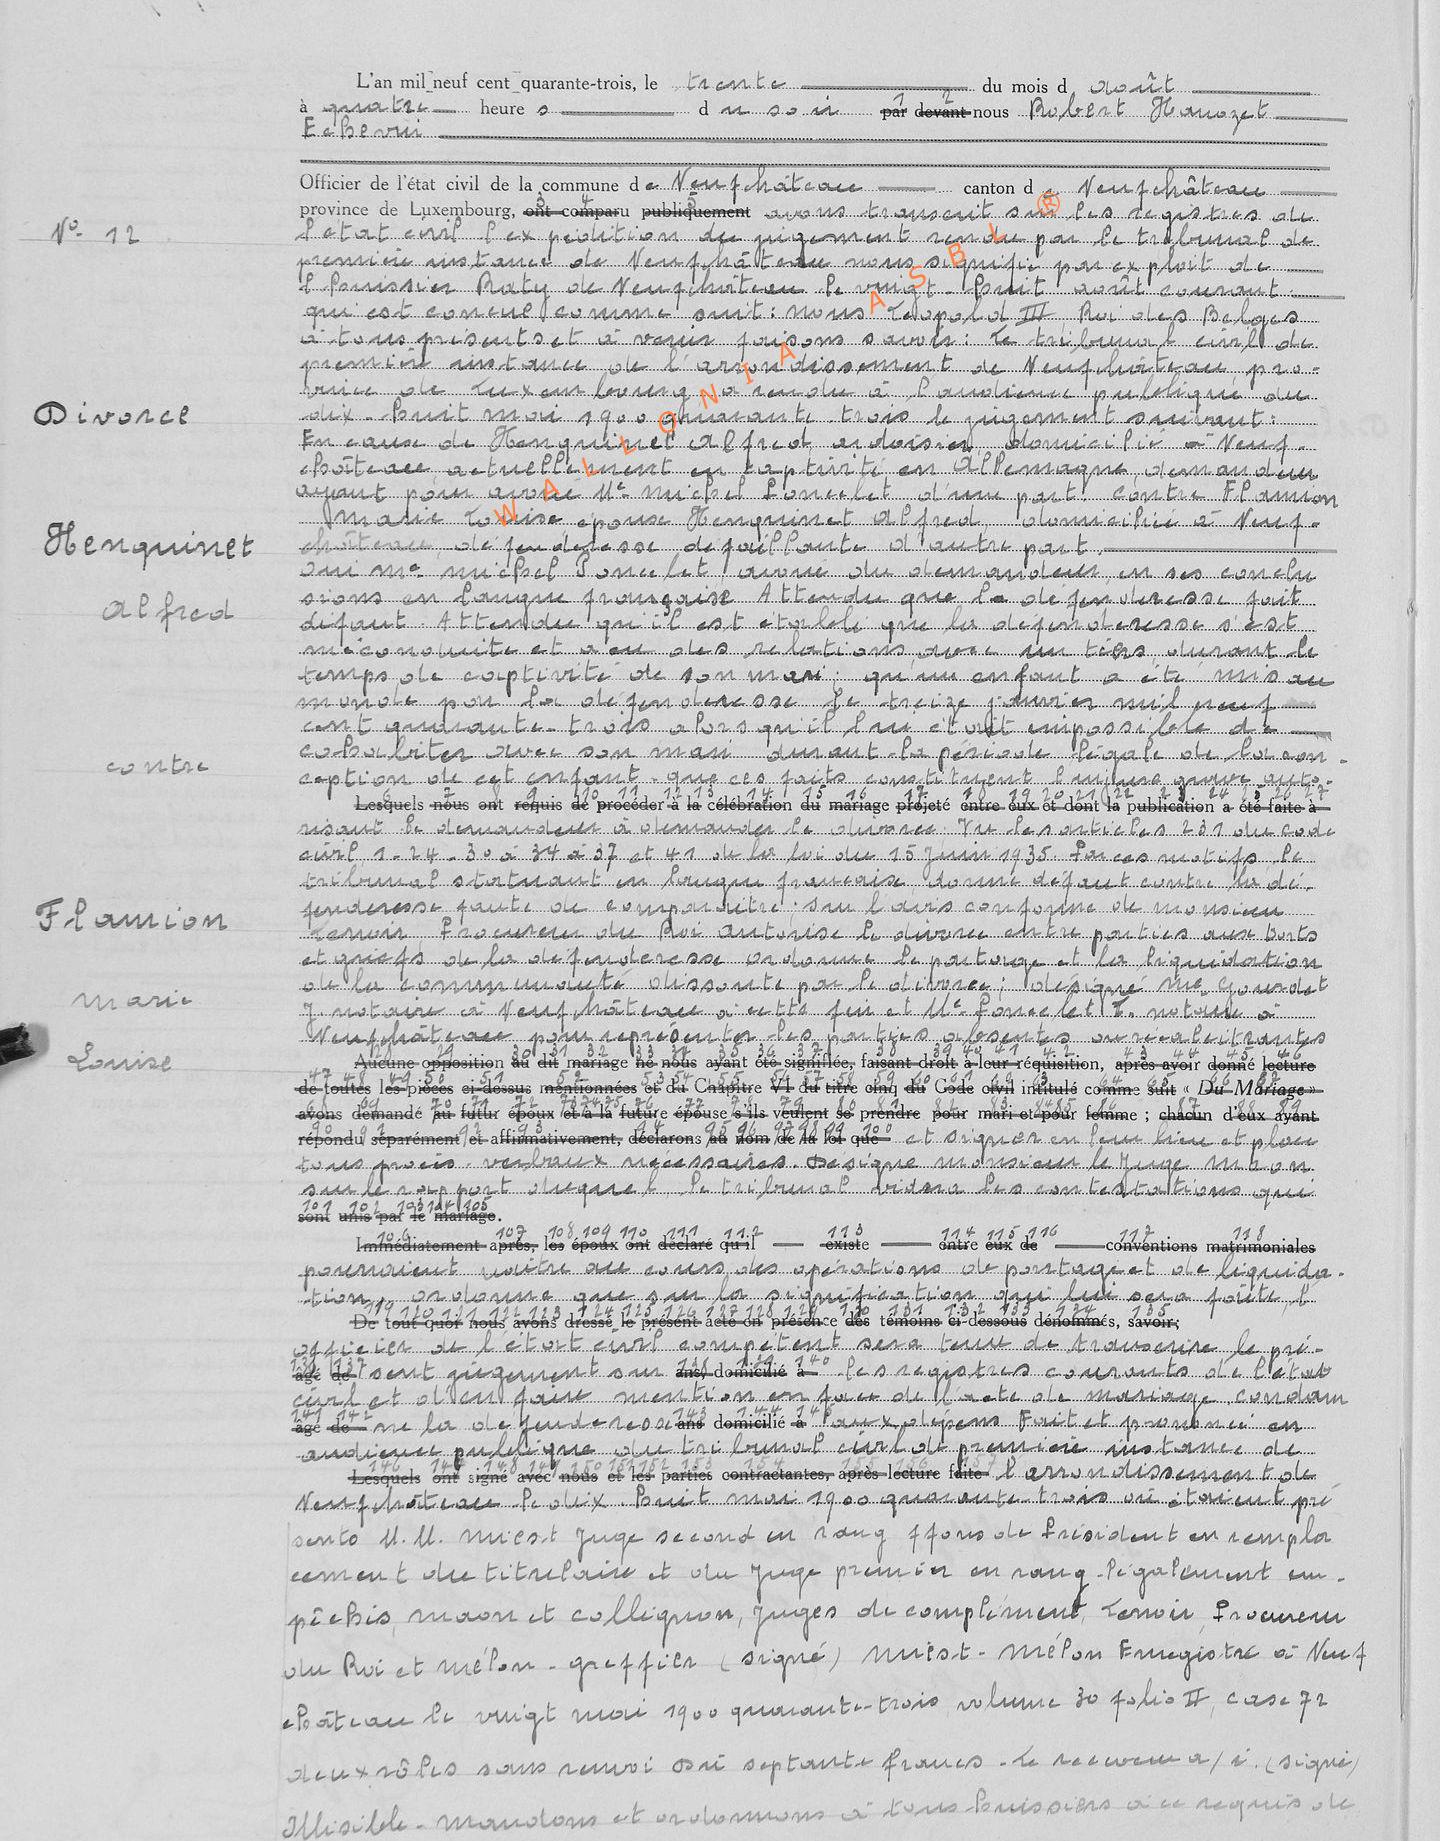 L'an mil neuf cent quarante-trois, le trente du mois d août
à quatre heure s du soir par devant nous Robert Hanozet
Echevin
Officier de l'état civil de la commune de Neufchâteau canton de Neufchâteau
province de Luxembourg, ont comparu publiquement avons transcrit sur les registres de
N° 12
l'état civil l'expédition du jugement rendu par le tribunal de
première instance de Neufchâteau nous signifié par exploit de
l'huissier Raty de Neufchâteau le vingt-huit août courant
qui est concue comme suit : nous Léopold III, Roi des Belges
à tous présents et à venir faisons savoir : Le tribunal civil de
première instance de l'arrondissement de Neufchâteau, pro-
vince de Luxembourg a rendu à l'audience publique du
Divorce
dix-huit mai 1900 quarante-trois le jugement suivant :
En cause de Henquinet Alfred, ardoisier, domicilié à Neuf-
château actuellement en captivité en Allemagne, demandeur
ayant pour avoué Me Michel Poncelet d'une part. Contre Flamion
Marie Louise épouse Henquinet Alfred, domiciliée à Neuf-
Henquinet
château, défenderesse défaillante d'autre part.
Oui Me Michel Poncelet, avoué du demandeur, en ses conclu
Alfred
sions en langue française Attendu que la défenderesse fait
défaut. Attendu qu'il est établi que la défenderesse s'est
méconduite et a eu des relations avec un tiers durant le
temps de captivité de son mari ; qu'un enfant a été mis au
monde par la défenderesse le treize janvier mil neuf
cent quarante-trois alors qu'il lui était impossible de
contre
cohabiter avec son mari durant la période légale de la con-
ception de cet enfant. que ces faits constituent l'injure grave auto-
Lesquels nous ont requis de procéder à la célébration du mariage projeté entre eux et dont la publication a été faite à
risant le demandeur à demander le divorce. Vu les articles 231 du code
civil 1-24-30 à 34 à 37 et 41 de la loi du 15 juin 1935. Par ces motifs le
tribunal statuant en langue française, donne défaut contre la dé-
fenderesse faute de comparaître ; sur l'avis conforme de monsieur
Flamion
Lenoir, Procureur du Roi autorise le divorce entre parties aux torts
et griefs de la défenderesse ordonne le partage et la liquidation
Marie
de la communauté dissoute par le divorce ; désigne Me Gourdet
J notaire à Neufchâteau à cette fin et Me Poncelet F. notaire à
Neufchâteau pour représenter les parties absentes ou récalcitrantes
Louise
Aucune opposition au dit mariage ne nous ayant été signifiée, faisant droit à leur réquisition, après avoir donné lecture
de toutes les pièces ci-dessus mentionnées et du Chapitre VI du titre cinq du Code civil intitulé comme suit « Du Mariage »
avons demandé au futur époux et à la future épouse s'ils veulent se prendre pour mari et pour femme ; chacun d'eux ayant
répondu séparément et affirmativement, déclarons au nom de la loi que et signer en leur lieu et place
tous procès-verbaux nécessaires. Désigne monsieur le Juge Maon
sur le rapport duquel le tribunal videra les contestations qui
sont unis par le mariage.
Immédiatement après, les époux ont déclaré qu'il existe entre eux de conventions matrimoniales
pourraient naître au cours des opérations de partage et de liquida-
tion, ordonne que sur la signification qui lui sera faite, l'
De tout quoi nous avons dressé le présent acte en présence des témoins ci-dessous dénommés, savoir:
officier de l'état civil compétent sera tenu de transcrire le pré-
âgé de sent jugement sur ans, domicilié à les registres courants de l'état
civil et d'en faire mention en face de l'acte de mariage, condam
âgé de ne la défenderesse ans domicilié à aux dépens Fait et prononcé en
audience publique du tribunal civil de première instance de
Lesquels ont signé avec nous et les parties contractantes, après lecture faite l'arrondissement de
Neufchâteau le dix-huit mai 1900 quarante-trois où étaient pré
sents M.M. Miest Juge second en rang ffons de Président en rempla
cement du titulaire et du Juge premier en rang légalement em-
pêchés, Maon et Collignon, Juges de complément, Lenoir, Procureur
du Roi et Mélon - greffier (signé) Miest - Mélon Enregistré à Neuf
château le vingt mai 1900 quarante-trois volume 30 folio II, case 72
deux rôles sans renvoi Dû septante francs - Le receveur a/i. (signé)
Illisible - Mandons et ordonnons à tous huissiers à ce requis de
WALLONIA ASBL ®